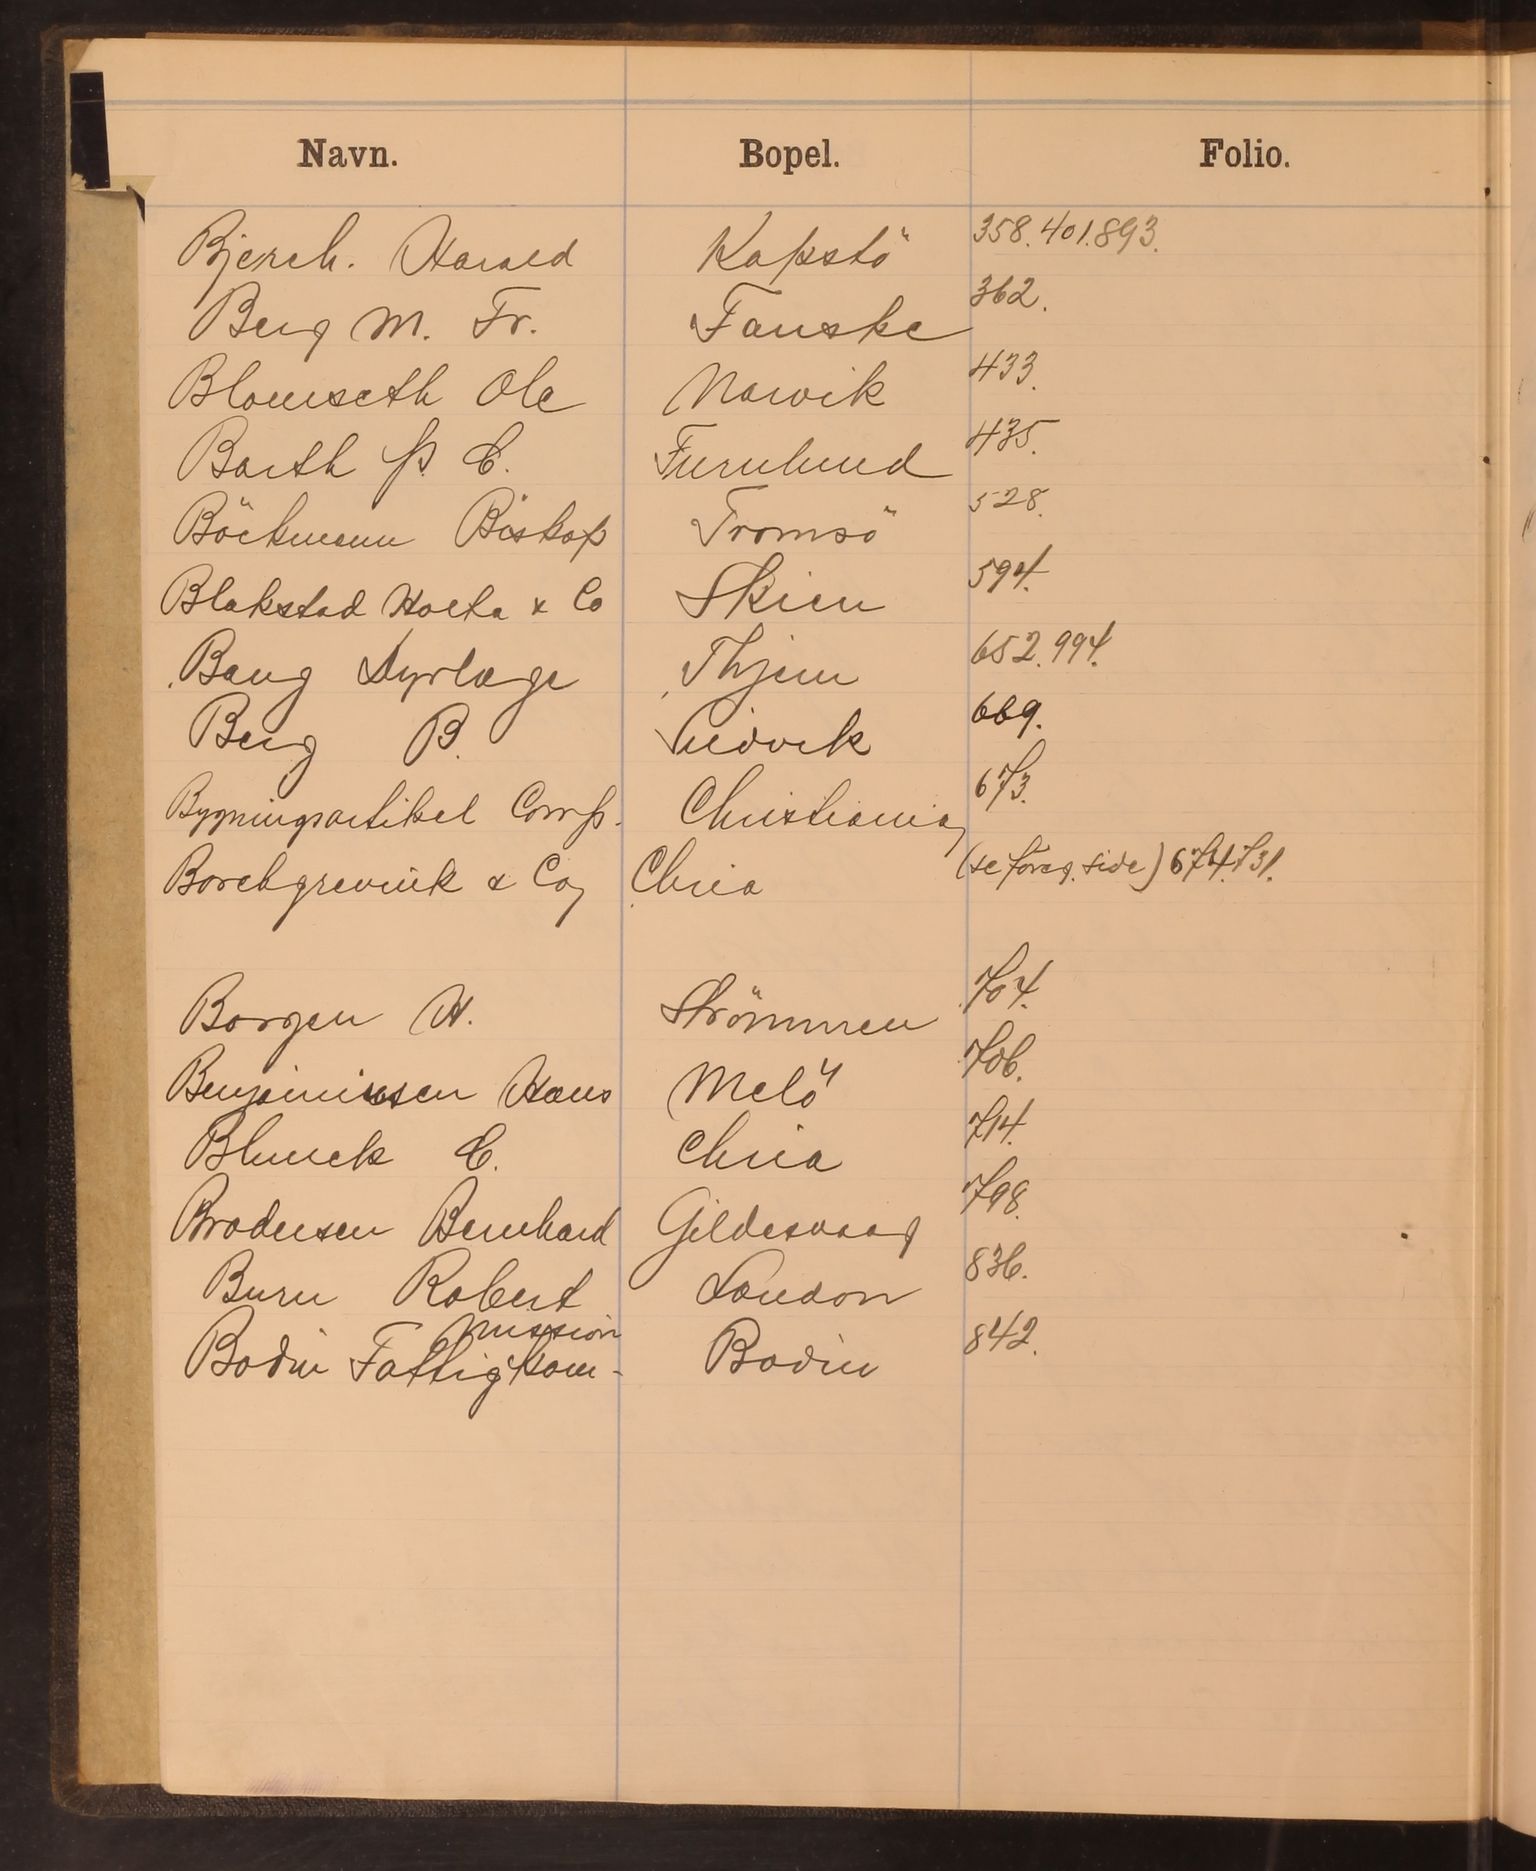 Navn. Bopel. Folio.
Bjerch. Harald Kapstö 358. 401. 893.
Berg M. Fr. Fauske 362.
Blomseth Ole Narvik 433.
Barth P. C. Furulund 435.
Böckmann Biskop Tromsö 528.
Blakstad Holta & Co Skien 594.
Bang Dyrlæge Thjem 652. 994.
Berg B. 669.
Bygningsartikel Comp. Christiania 673.
Borchgrevink & Co Chria (se foreg. side) 674. 731.
Borgen H. Strömmen 704.
Benjaminsen Hans Melö 706.
Blunck C. Chria 714.
Brodersen Bernhard Gildesvaag 798.
Burn Robert London 836.
mission
Bodin Fattigkom- Bodin 842.